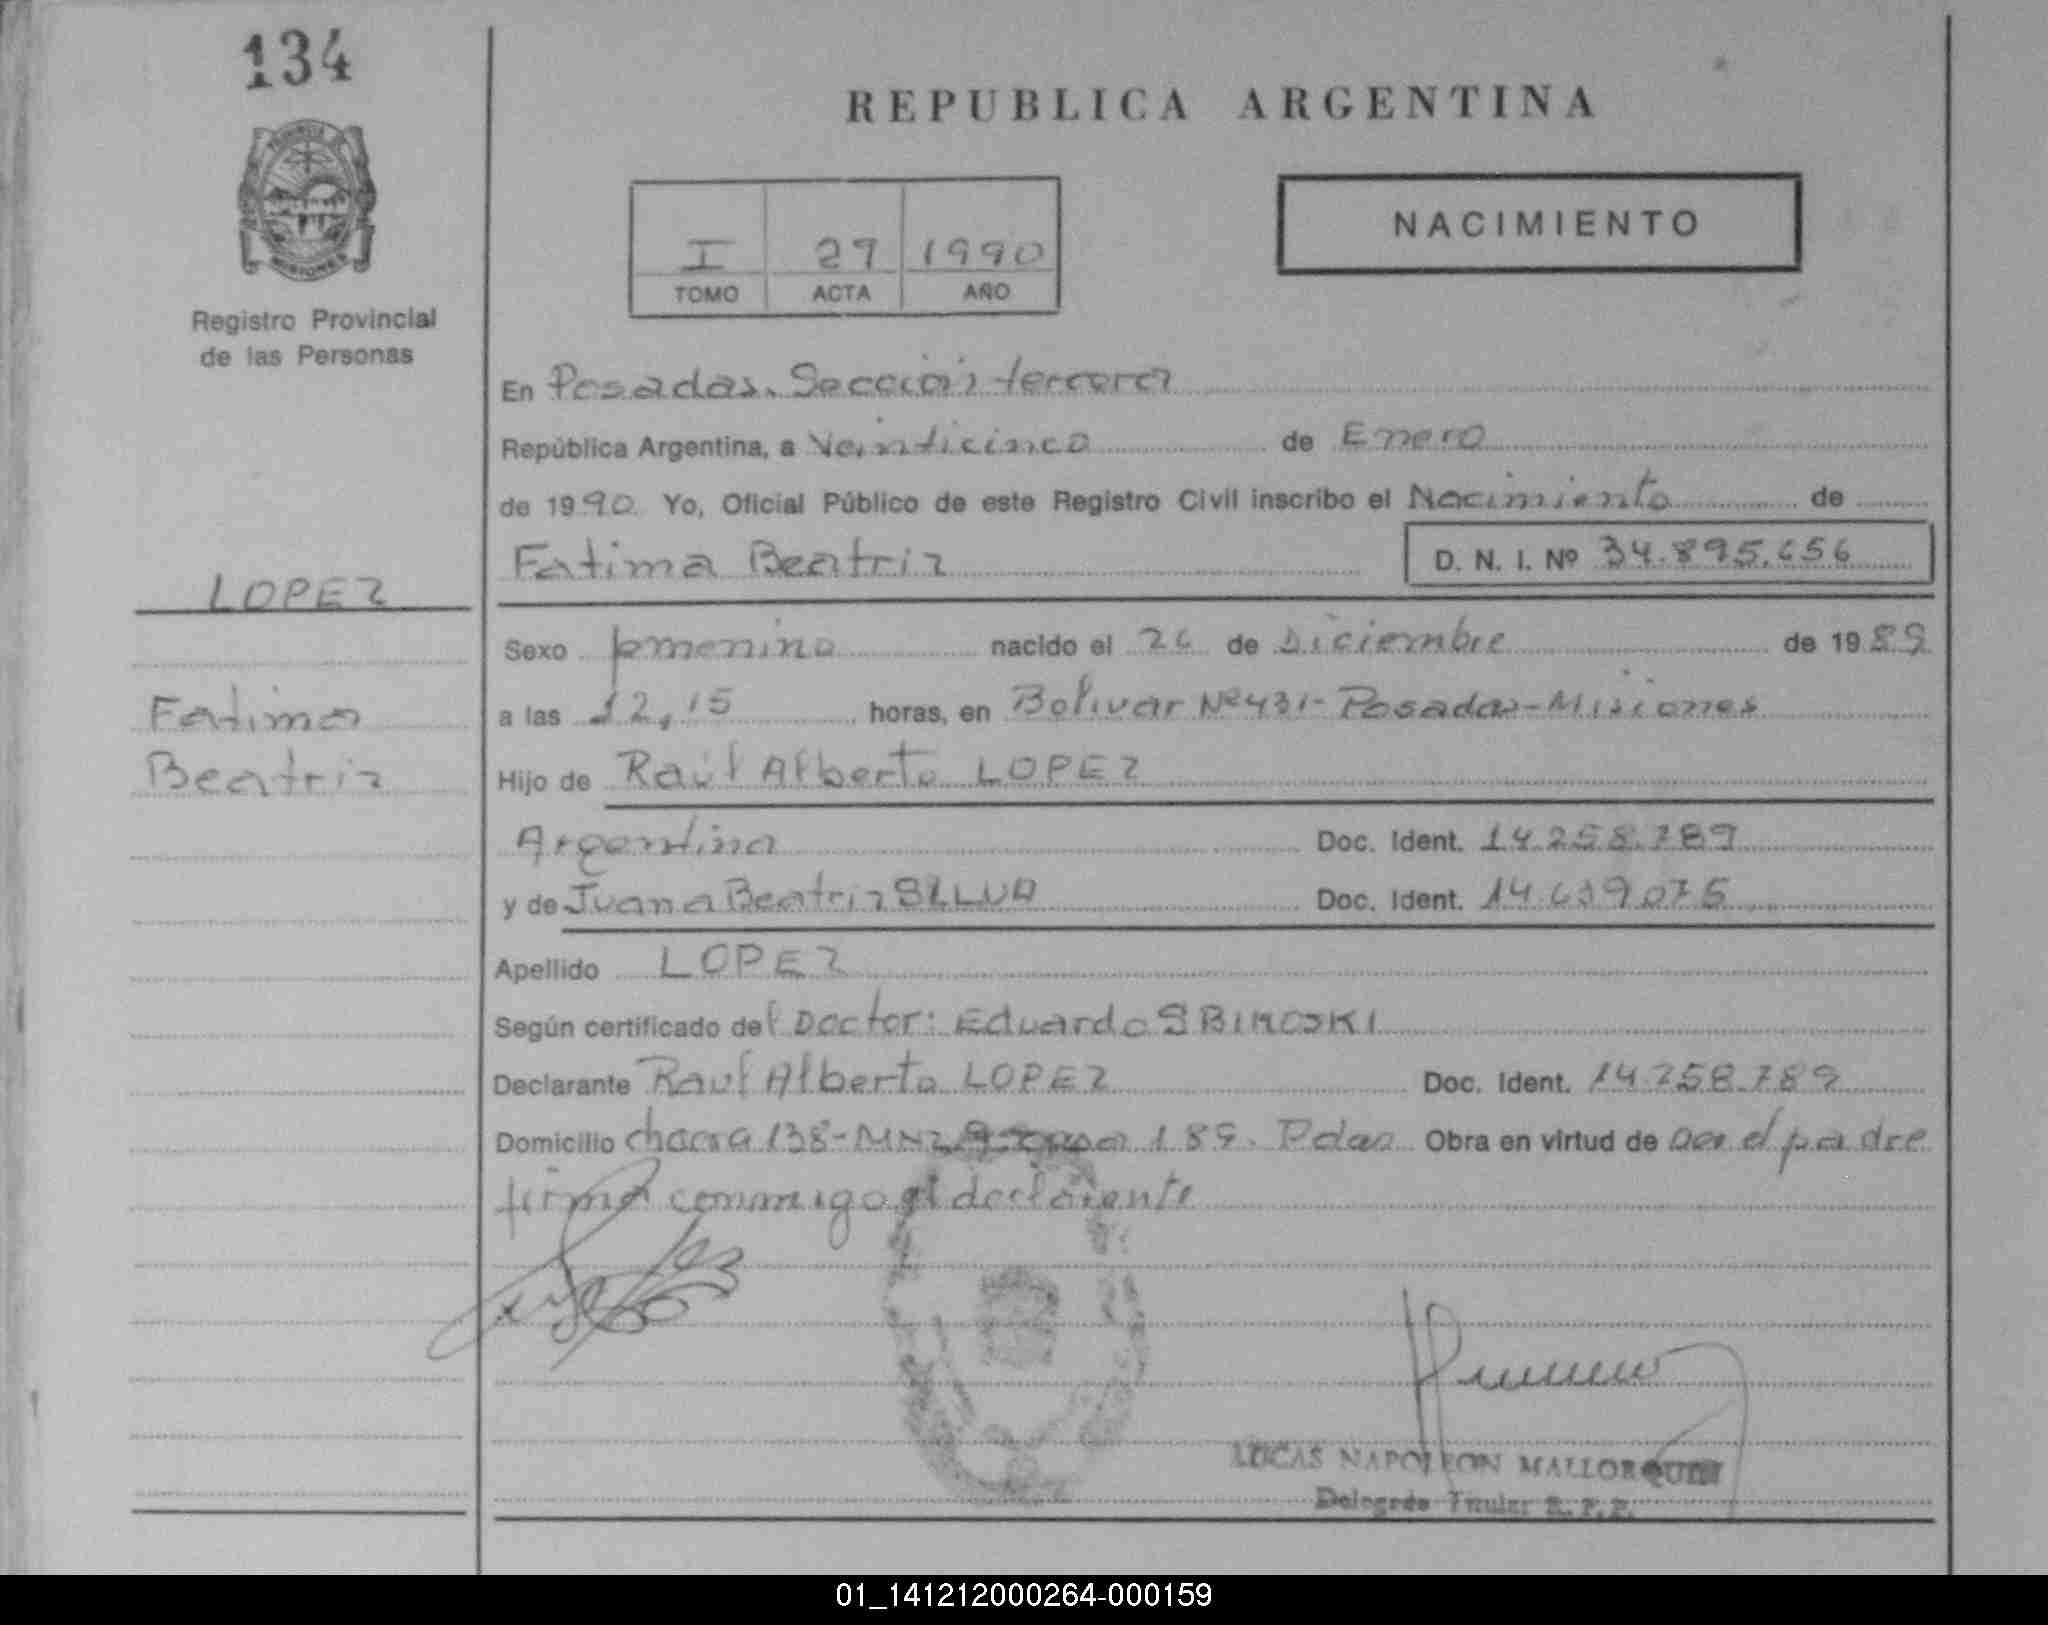 134
REPUBLICA ARGENTINA
PROVINCIA DE
MISIONES
Registro Provincial
de las Personas
I 27 1990
TOMO ACTA AÑO
NACIMIENTO
En Posadas. Sección tercera
República Argentina, a Veinticinco de Enero
de 1990 Yo, Oficial Público de este Registro Civil inscribo el Nacimiento de
Fatima Beatriz D. N. I. Nº 34.895.656
LOPEZ
Fatima
Beatriz
Sexo femenino nacido el 26 de Diciembre de 1989
a las 12,15 horas, en Bolivar Nº 431- Posadas-Misiones
Hijo de Raúl Alberto LOPEZ
Argentina Doc. Ident. 14.258.789
y de Juana Beatriz Doc. Ident. 14.639.075
Apellido LOPEZ
Según certificado del Doctor: Eduardo
Declarante Raul Alberto LOPEZ Doc. Ident. 14.258.789
Domicilio chacra 138- MNZ 9 casa 189. Pdas Obra en virtud de ser el padre
firma conmigo el declarante
LUCAS NAPOLEON MALLORQUIN
Delegado Titular R. P. P.
01_141212000264-000159